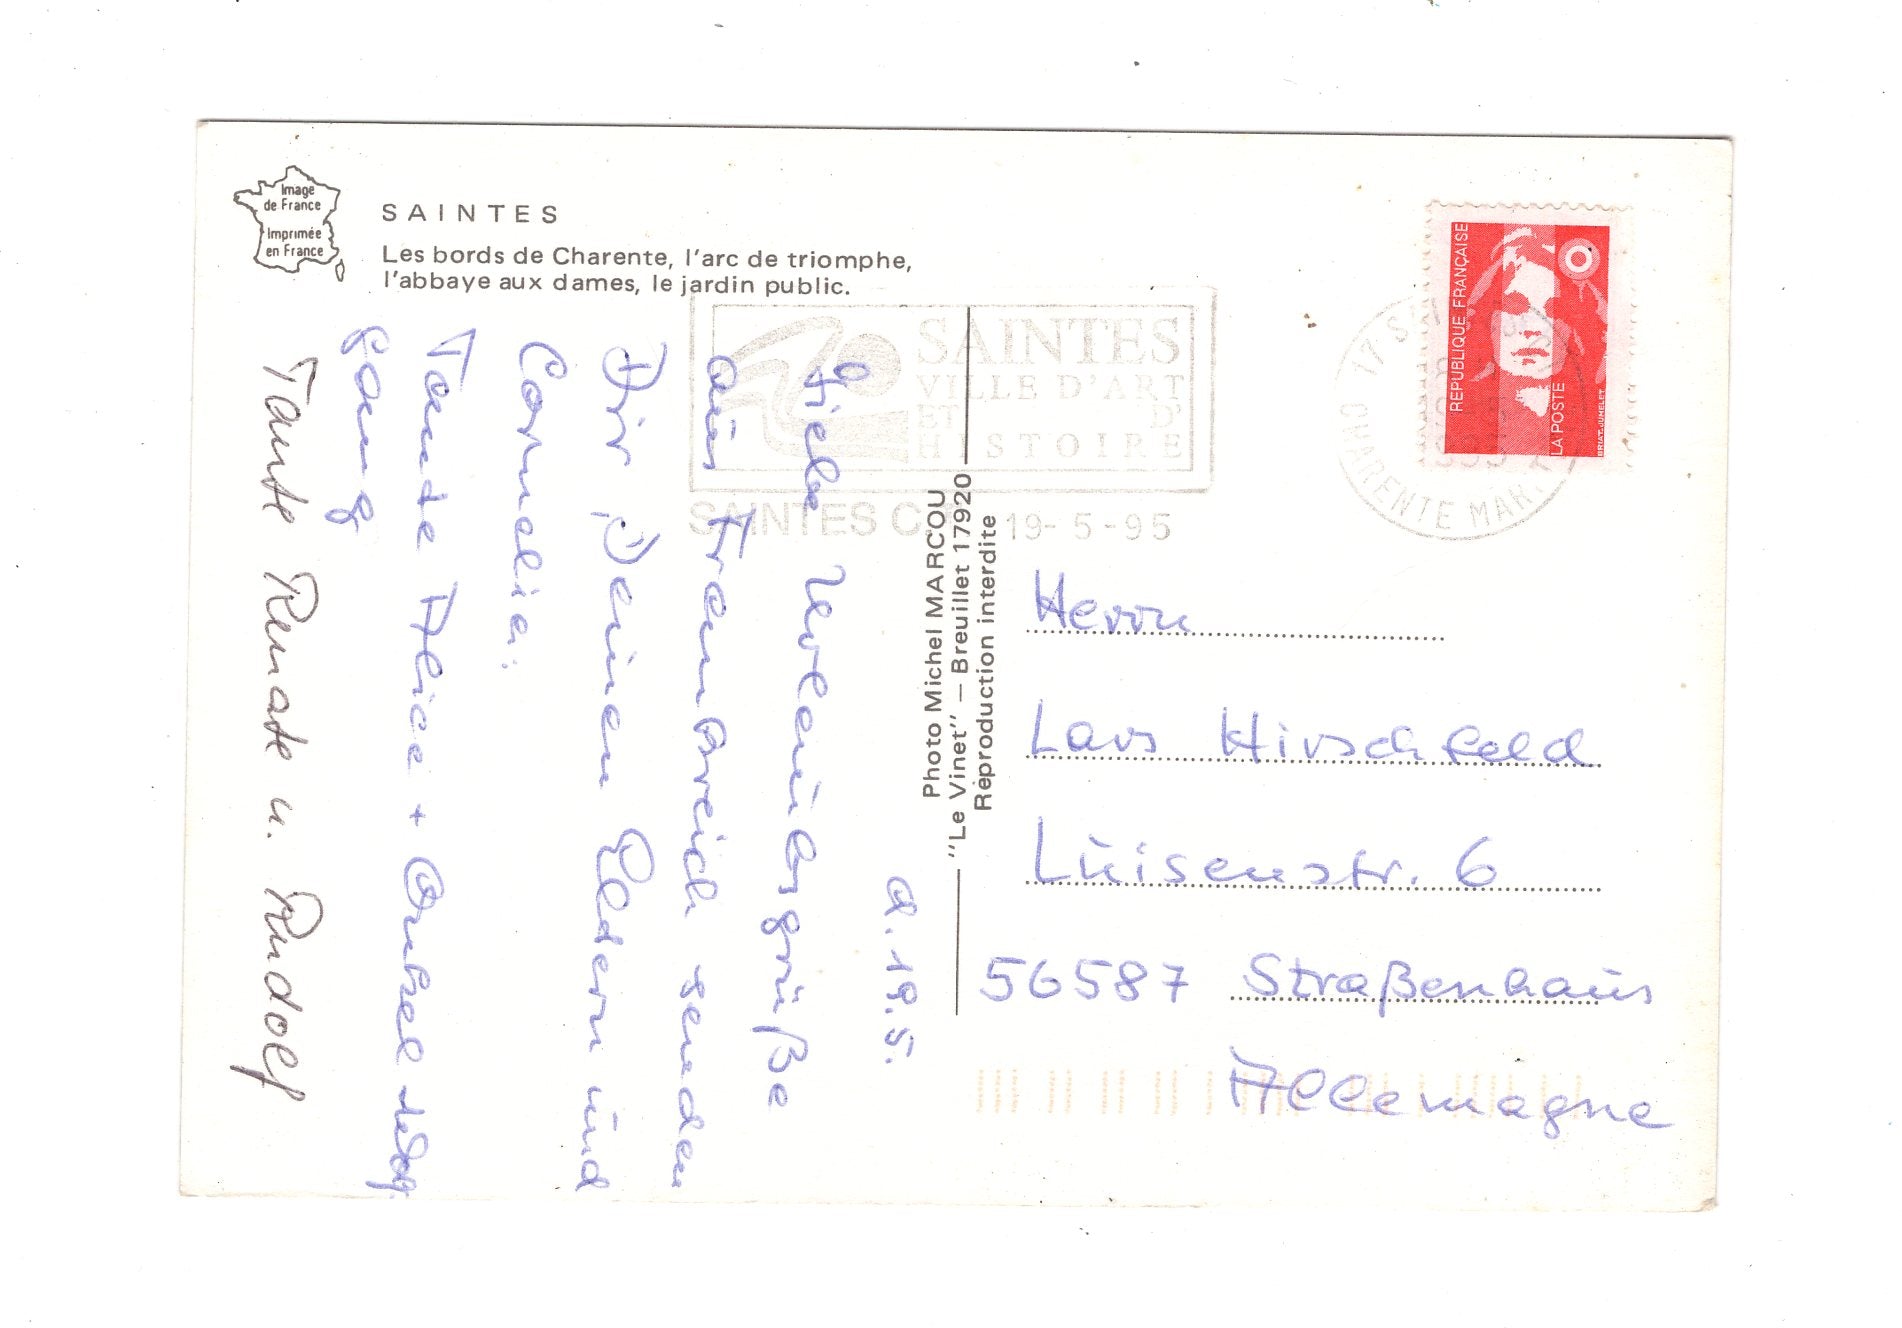 Image
de France
Imprimée
en France
SAINTES
Les bords de Charente, l'arc de triomphe,
l'abbaye aux dames, le jardin public.
SAINTES
VILLE D'ART
ET D'
HISTOIRE
SAINTES C. 19-5-95
17 SA
CHARENTE MAR.
REPUBLIQUE FRANÇAISE
LA POSTE
BRIAT-JUMELET
Photo Michel MARCOU
"Le Vinet" — Breuillet 17920
Reproduction interdite
d. 19.5.
Viele Urlaubsgrüße
aus Frankreich senden
Dir, Deinen Eltern und
Cornelia:
Tante Alice + Onkel Wolf
gang
Tante Renate u. Rudolf
Herrn
Lars Hirschfeld
Luisenstr. 6
56587 Straßenhaus
Allemagne